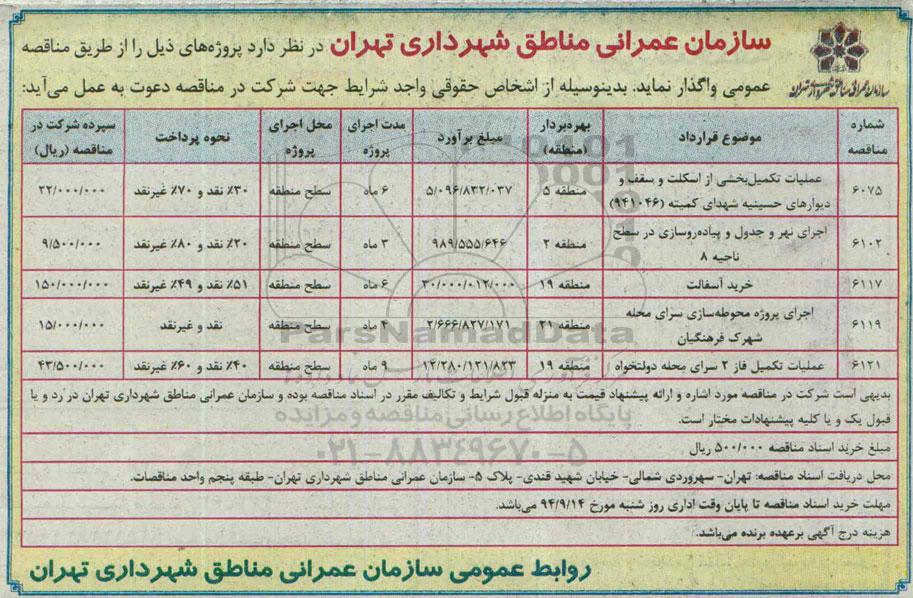 سازمان عمرانی مناطق شهرداری تهران در نظر دارد پروژه‌های ذیل را از طریق مناقصه
عمومی واگذار نماید. بدینوسیله از اشخاص حقوقی واجد شرایط جهت شرکت در مناقصه دعوت به عمل می‌آید:
سازمان عمرانی مناطق شهرداری تهران
شماره مناقصه | موضوع قرارداد | بهره‌بردار (منطقه) | مبلغ برآورد | مدت اجرای پروژه | محل اجرای پروژه | نحوه پرداخت | سپرده شرکت در مناقصه (ریال)
۶۰۷۵ | عملیات تکمیل‌بخشی از اسکلت و سقف و دیوارهای حسینیه شهدای کمیته (۹۴۱۰۴۶) | منطقه ۵ | ۵/۰۹۶/۸۳۲/۰۳۷ | ۶ ماه | سطح منطقه | ۳۰٪ نقد و ۷۰٪ غیرنقد | ۲۲/۰۰۰/۰۰۰
۶۱۰۲ | اجرای نهر و جدول و پیاده‌روسازی در سطح ناحیه ۸ | منطقه ۲ | ۹۸۹/۵۵۵/۶۴۶ | ۳ ماه | سطح منطقه | ۲۰٪ نقد و ۸۰٪ غیرنقد | ۹/۵۰۰/۰۰۰
۶۱۱۷ | خرید آسفالت | منطقه ۱۹ | ۳۰/۰۰۰/۰۱۲/۰۰۰ | ۶ ماه | سطح منطقه | ۵۱٪ نقد و ۴۹٪ غیرنقد | ۱۵۰/۰۰۰/۰۰۰
۶۱۱۹ | اجرای پروژه محوطه‌سازی سرای محله شهرک فرهنگیان | منطقه ۲۱ | ۲/۶۶۶/۸۲۷/۱۷۱ | ۲ ماه | سطح منطقه | نقد و غیرنقد | ۱۵/۰۰۰/۰۰۰
۶۱۲۱ | عملیات تکمیل فاز ۲ سرای محله دولتخواه | منطقه ۱۹ | ۱۲/۲۸۰/۱۲۱/۸۲۳ | ۹ ماه | سطح منطقه | ۴۰٪ نقد و ۶۰٪ غیرنقد | ۴۳/۵۰۰/۰۰۰
بدیهی است شرکت در مناقصه مورد اشاره و ارائه پیشنهاد قیمت به منزله قبول شرایط و تکالیف مقرر در اسناد مناقصه بوده و سازمان عمرانی مناطق شهرداری تهران در رد و یا
قبول یک و یا کلیه پیشنهادات مختار است.
مبلغ خرید اسناد مناقصه ۵۰۰/۰۰۰ ریال
محل دریافت اسناد مناقصه: تهران- سهروردی شمالی- خیابان شهید قندی- پلاک ۵- سازمان عمرانی مناطق شهرداری تهران- طبقه پنجم واحد مناقصات.
مهلت خرید اسناد مناقصه تا پایان وقت اداری روز شنبه مورخ ۹۴/۹/۱۴ می‌باشد.
هزینه درج آگهی برعهده برنده می‌باشد.
روابط عمومی سازمان عمرانی مناطق شهرداری تهران
ParsNamadData
پایگاه اطلاع رسانی مناقصه و مزایده
۰۲۱-۸۸۳۴۹۶۷۰-۵